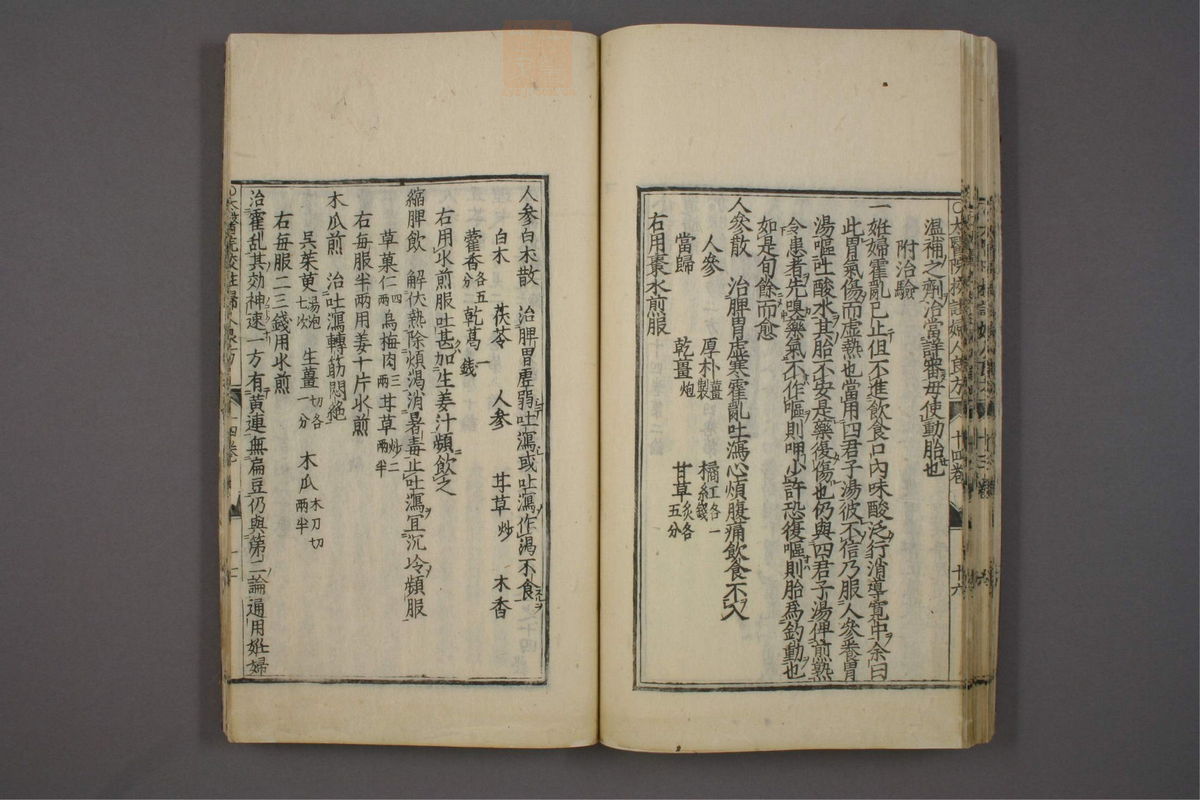 温補之劑治當詳審毋使動胎也
附治驗
一姙婦霍亂已止但不進飲食口內味酸泛行消導寛中余曰
此胃氣傷而虛熱也當用四君子湯彼不信乃服人參養胃
湯嘔吐酸水其胎不安是藥復傷也仍與四君子湯俾煎熟
令患者先嗅藥氣不作嘔則呷少許恐復嘔則胎爲釣動也
如是旬餘而愈
人參散 治脾胃虛寒霍亂吐瀉心煩腹痛飲食不入
人參 厚朴薑製 橘紅各一錢
當歸 乾薑炮 甘草炙各五分
右用棗水煎服
〇太醫院校註婦人良方 十四卷 十六
人參白朮散 治脾胃虛弱吐瀉或吐瀉作渴不食
白朮 茯苓 人參 甘草炒 木香
藿香各五分 乾葛一錢
右用水煎服吐甚加生姜汁頻飲之
縮脾飲 解伏熱除煩渴消暑毒止吐瀉宜沉冷頻服
草菓仁四兩 烏梅肉三兩 甘草炒二兩半
右每服半兩用姜十片水煎
木瓜煎 治吐瀉轉筋悶絶
吳茱萸湯炮七次 生薑切各一分 木瓜木刀切兩半
右每服二三錢用水煎
治霍乱其効神速一方有黃連無扁豆仍與第二論通用姙婦